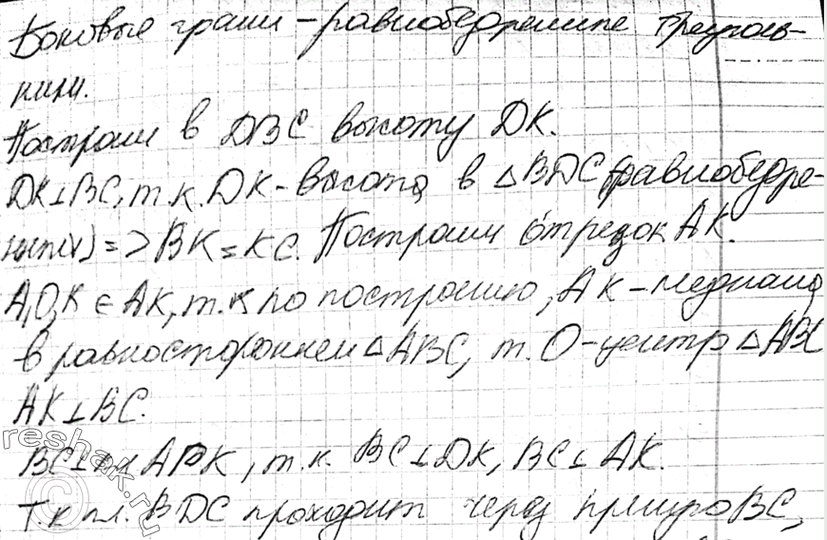 Боковые грани – равнобедренные треуголь-
ники.
Построим в DBC высоту DK.
DK⊥BC, т.к. DK-высота в △BDC (равнобедре-
нный) => BK = KC. Построим отрезок AK.
A,O,K ∈ AK, т.к по построению, AK-медиана
в равностороннем △ABC, т. O-центр △ABC
AK⊥BC.
BC⊥ ADK, т.к. BC⊥DK, BC⊥AK.
Т.к пл. BDC проходит через прямую BC,
reshak.ru